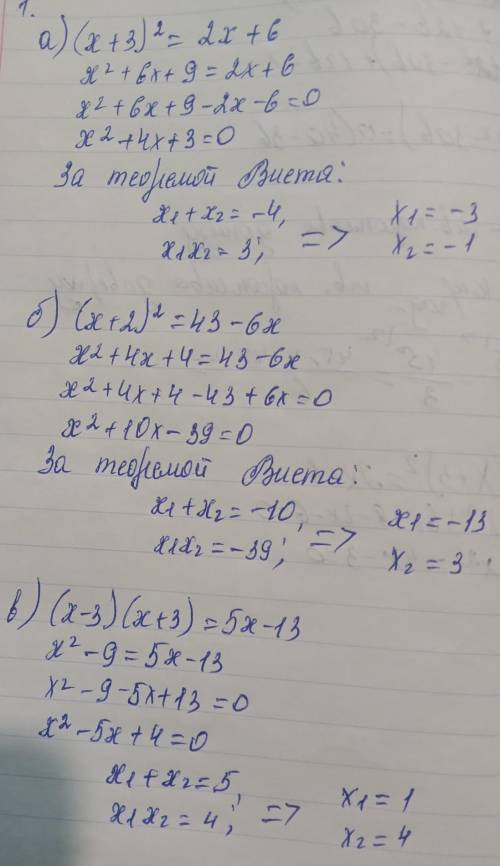 1.
а) (x+3)² = 2x+6
x²+6x+9=2x+6
x²+6x+9-2x-6=0
x²+4x+3=0
За теоремой Виета:
x₁+x₂=-4, x₁=-3
x₁x₂=3; => x₂=-1
б) (x+2)²=43-6x
x²+4x+4=43-6x
x²+4x+4-43+6x=0
x²+10x-39=0
За теоремой Виета:
x₁+x₂=-10, x₁=-13
x₁x₂=-39; => x₂=3
в) (x-3)(x+3)=5x-13
x²-9=5x-13
x²-9-5x+13=0
x²-5x+4=0
x₁+x₂=5, x₁=1
x₁x₂=4; => x₂=4